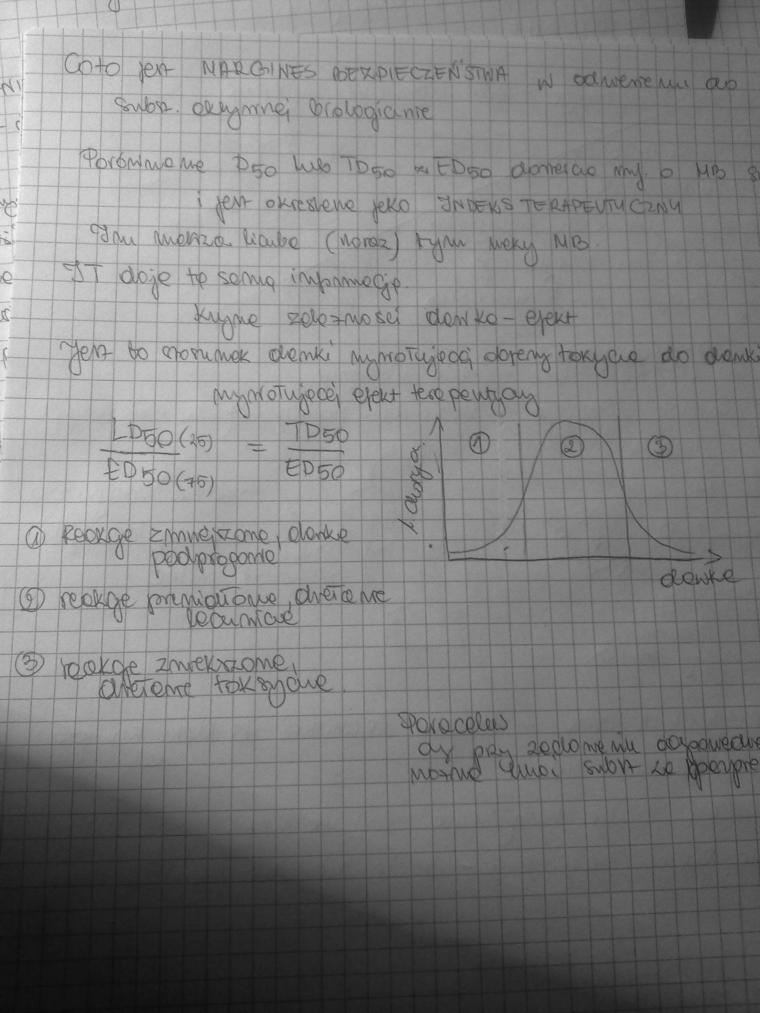 Co to jest MARGINES BEZPIECZEŃSTWA w odniesieniu do
subst. czynnej biologicznie
Porównanie D50 lub TD50 z ED50 donosi o MB
i jest określane jako INDEKS TERAPEUTYCZNY
Im większa liczba (iloraz) tym większy MB.
IT daje tę samą informację.
Krzywe zależności dawka - efekt
Jest to stosunek dawki wywołującej objawy toksyczne do dawki
wywołującej efekt terapeutyczny
LD50 (25) = TD50
ED50 (75) ED50
① ② ③
dawka
① Reakcje zmniejszone, dawka
podprogowe
② reakcje prawidłowe, działanie
lecznicze
③ reakcje zwiększone,
działanie toksyczne.
Paracelsus
czy przy
można subst za